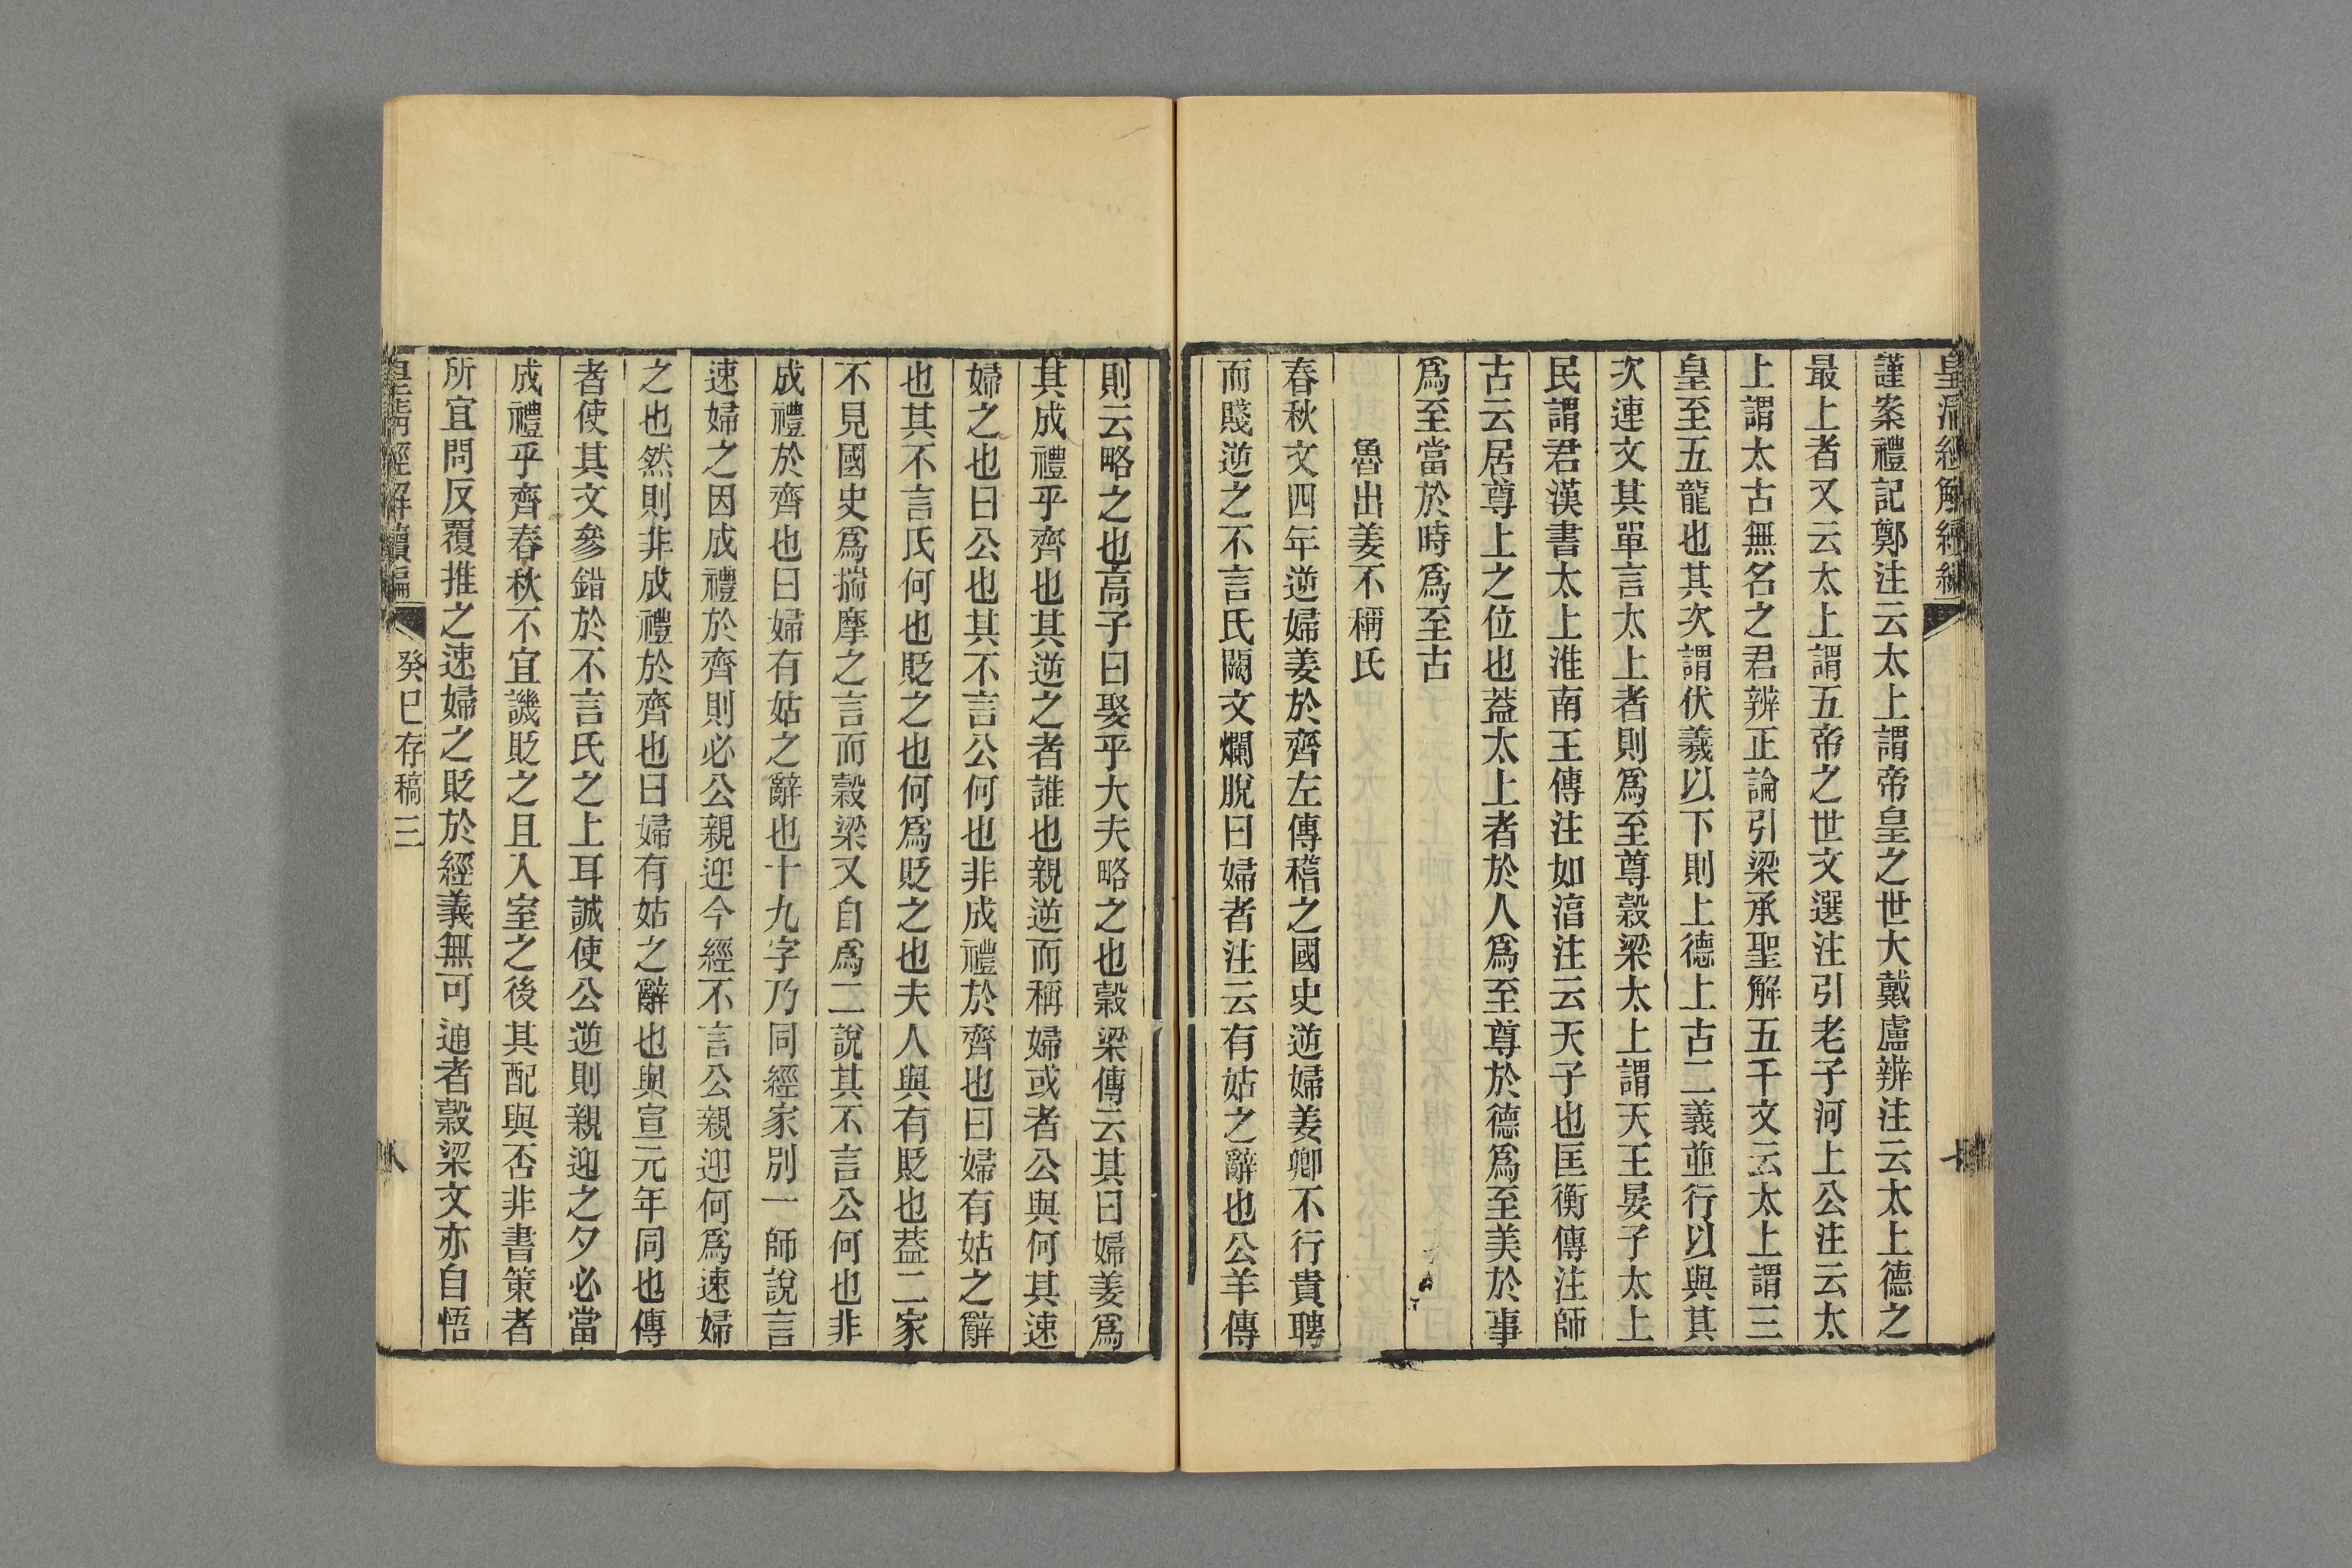 皇清經解續編
謹案禮記鄭注云太上謂帝皇之世大戴盧辨注云太上德之
最上者又云太上謂五帝之世文選注引老子河上公注云太
上謂太古無名之君辨正論引梁承聖解五千文云太上謂三
皇至五龍也其次謂伏羲以下則上德上古二義並行以與其
次連文其單言太上者則爲至尊穀梁太上謂天王晏子太上
民謂君漢書太上淮南王傳注如淳注云天子也匡衡傳注師
古云居尊上之位也葢太上者於人爲至尊於德爲至美於事
爲至當於時爲至古
魯出姜不稱氏
春秋文四年逆婦姜於齊左傳稽之國史逆婦姜卿不行貴聘
而賤逆之不言氏闕文爛脫曰婦者注云有姑之辭也公羊傳
則云略之也高子曰娶乎大夫略之也穀梁傳云其曰婦姜爲
其成禮乎齊也其逆之者誰也親逆而稱婦或者公與何其速
婦之也曰公也其不言公何也非成禮於齊也曰婦有姑之辭
也其不言氏何也貶之也何爲貶之也夫人與有貶也葢二家
不見國史爲揣摩之言而穀梁又自爲二說其不言公何也非
成禮於齊也曰婦有姑之辭也十九字乃同經家別一師說言
速婦之因成禮於齊則必公親迎今經不言公親迎何爲速婦
之也然則非成禮於齊也曰婦有姑之辭也與宣元年同也傳
者使其文參錯於不言氏之上耳誠使公逆則親迎之夕必當
成禮乎齊春秋不宜譏貶之且入室之後其配與否非書策者
所宜問反覆推之速婦之貶於經義無可通者穀梁文亦自悟
皇清經解續編
癸巳存稿三
八